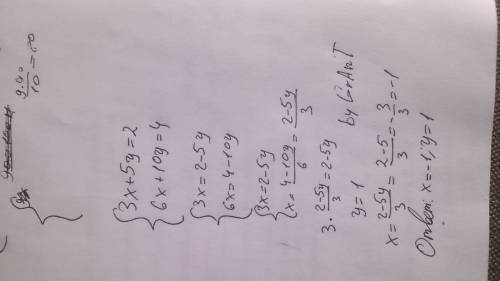 9·00
10 = 00
{3x+5y=2
{6x+10y=4
{3x=2-5y
{6x=4-10y
{3x=2-5y
{x=4-10y/6=2-5y/3
3·2-5y/3=2-5y
y=1 by GrAnT
x=2-5y/3=2-5/3=-3/3=-1
Ответ: x=-1; y=1